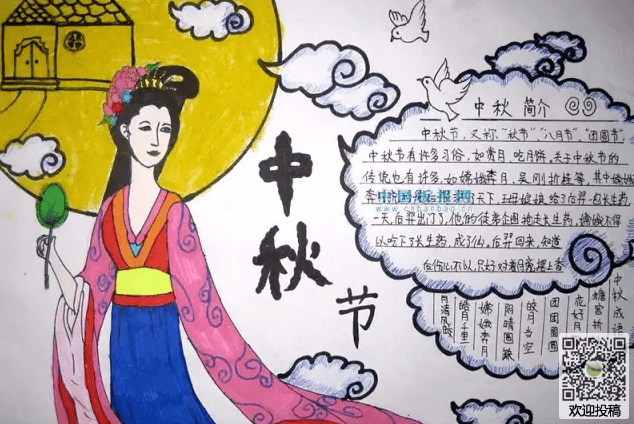 中秋节
中秋简介
中秋节，又称“秋节”、“八月节”、“团圆节”，
中秋节有许多习俗，如赏月、吃月饼，关于中秋节的
传说也有许多，如嫦娥奔月，吴刚折桂等，其中嫦娥
奔月 天下，王母娘娘给了后羿一包长生药
一天，后羿出门了，他的徒弟企图抢走长生药，嫦娥不得
以吃下了长生药，成了仙，后羿回来，知道
后伤心不以，只好对着月亮摆上香
中秋成语
蟾宫折
花好月
团团圆圆
皓月当空
阴晴圆缺
嫦娥奔月
皓月千里
月清风
中国板报网
欢迎投稿